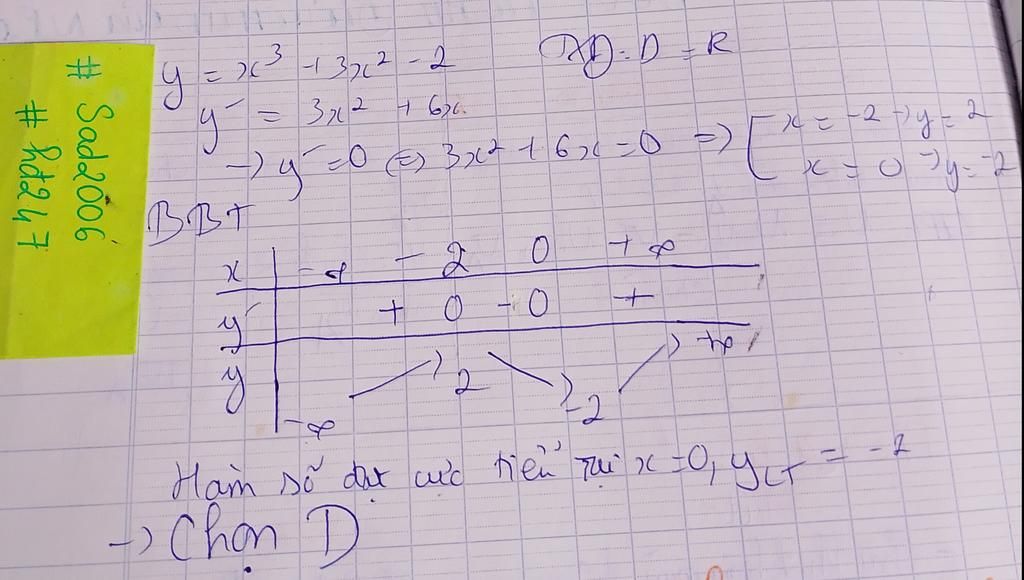 # Sad2006
# hd247
y = x³ + 3x² - 2 TXĐ: D = R
y' = 3x² + 6x
→ y' = 0 ⇔ 3x² + 6x = 0 ⇒ [ x = -2 → y = 2
x = 0 → y = -2
BBT
x -∞ -2 0 +∞
y' + 0 - 0 +
y -∞ ↗ 2 ↘ -2 ↗ +∞
Hàm số đạt cực tiểu tại x = 0, yCT = -2
→ Chọn D